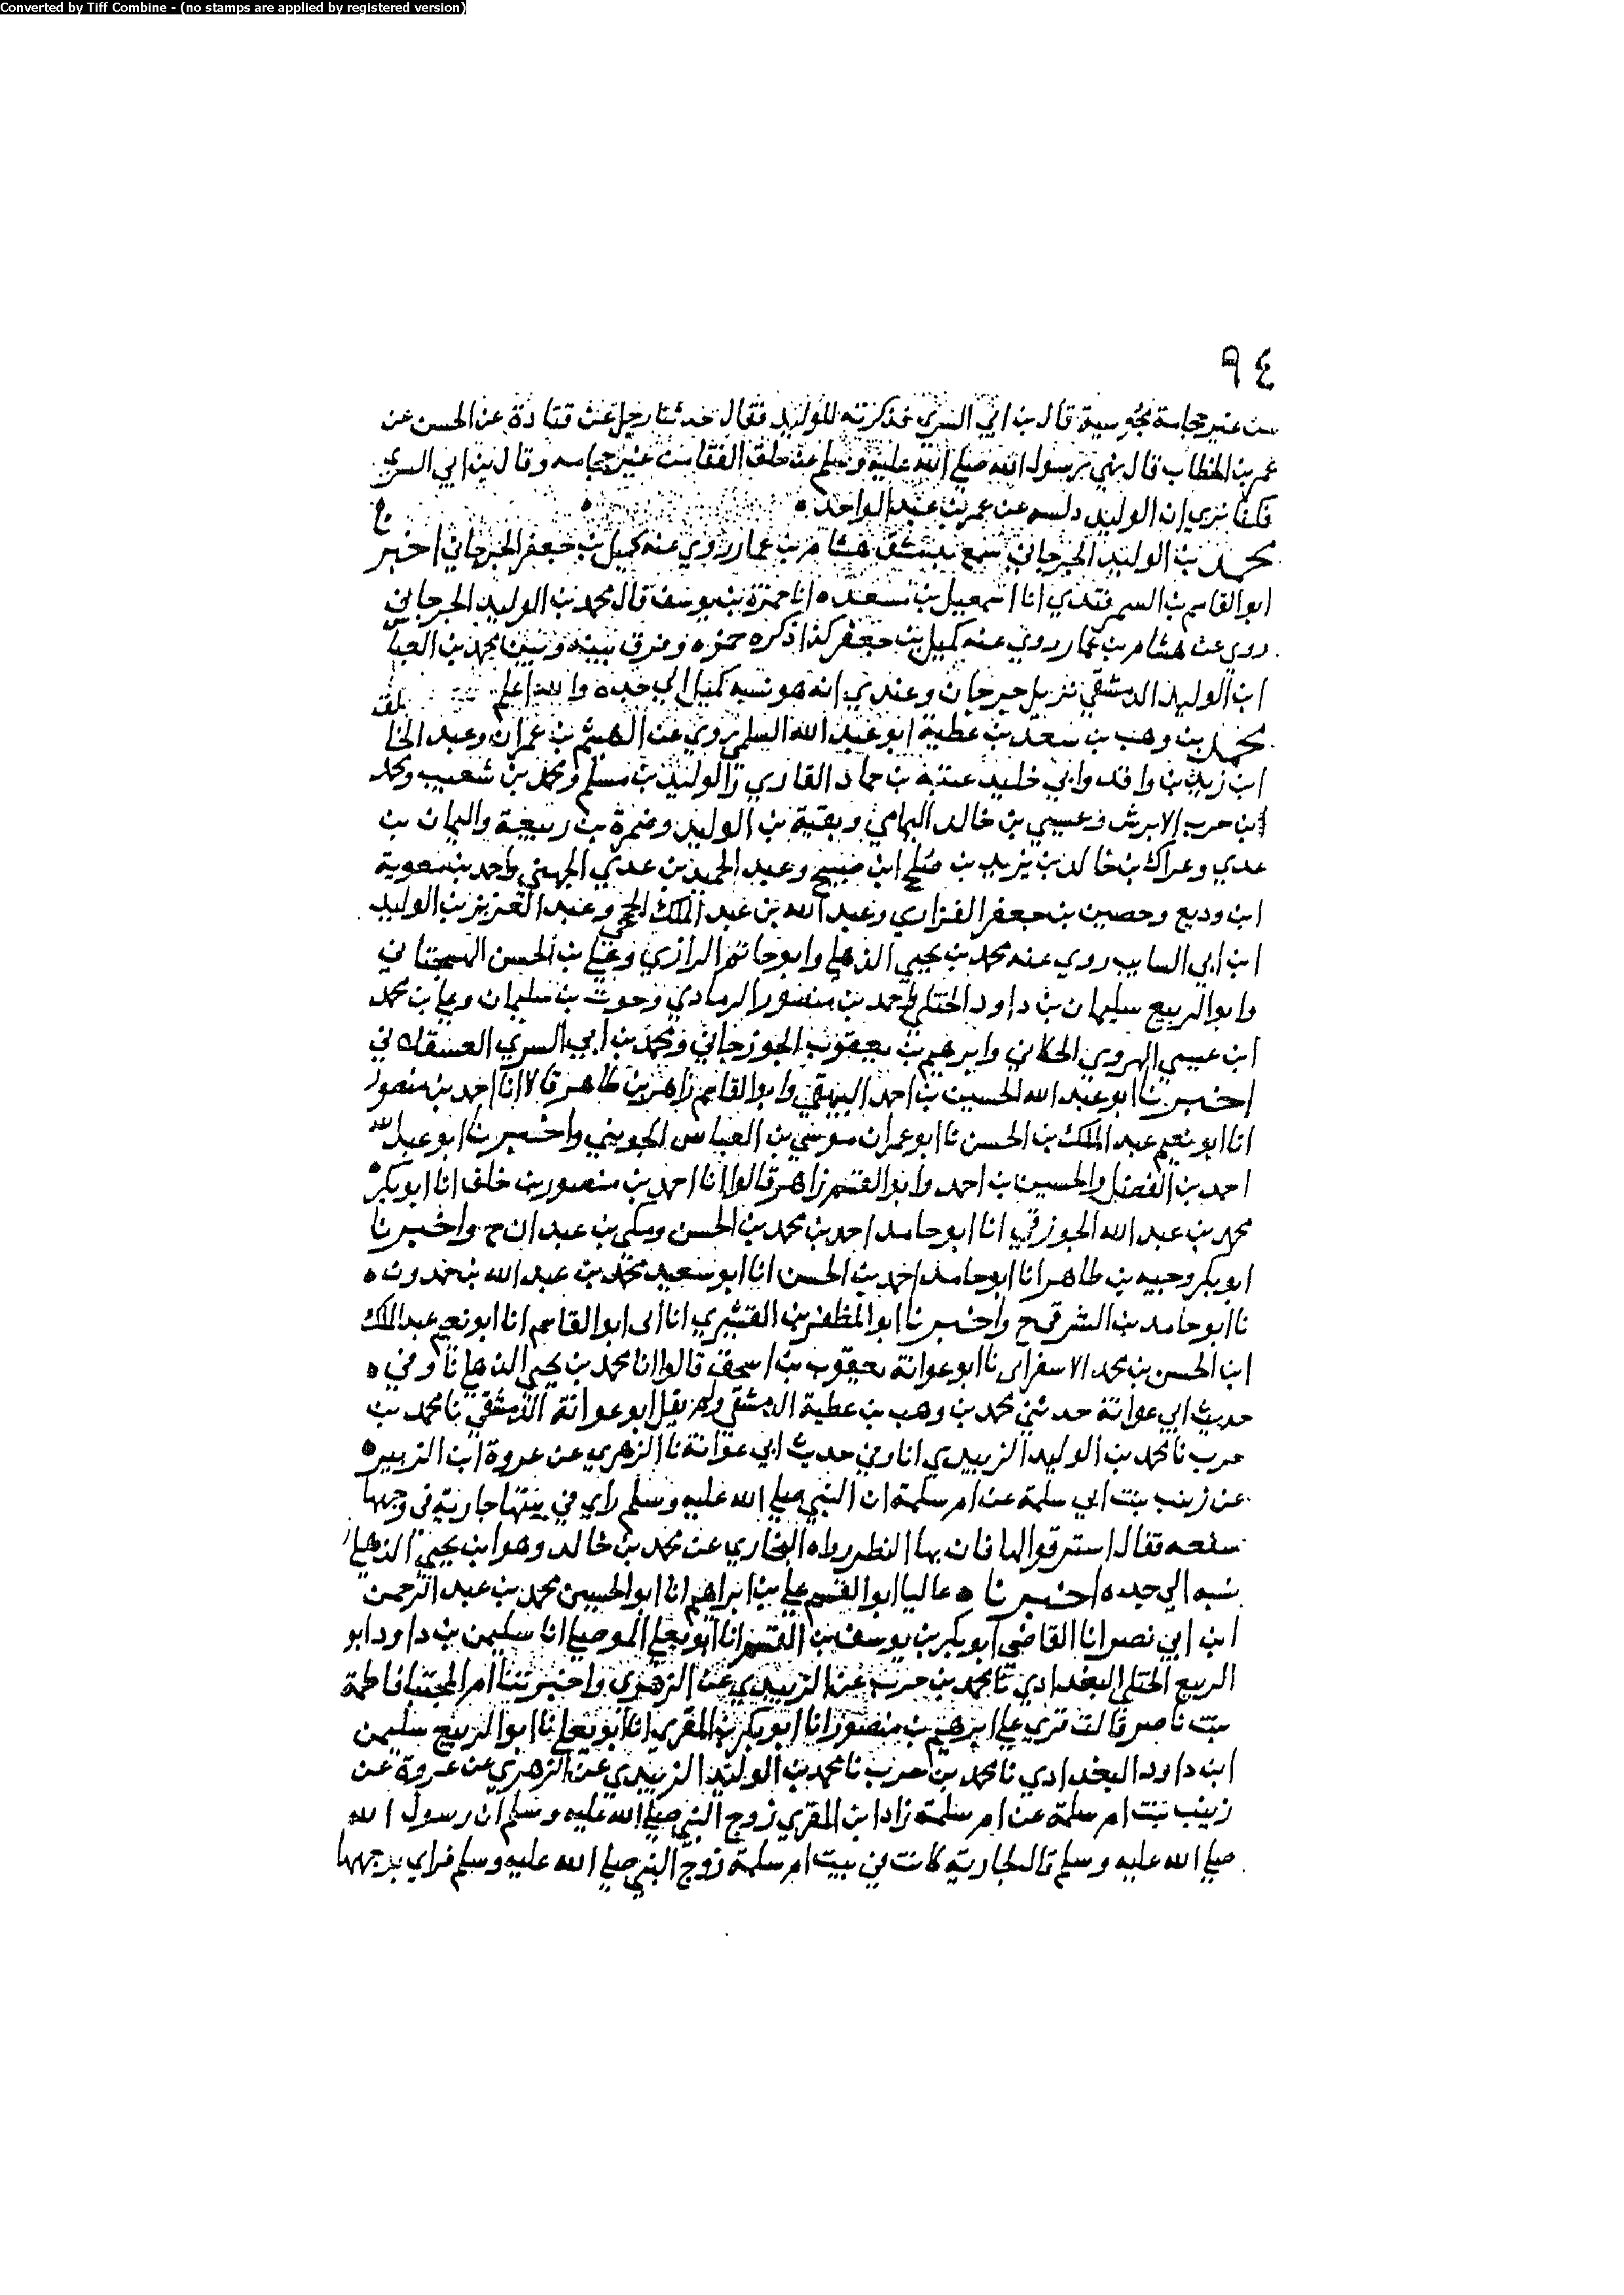 Converted by Tiff Combine - (no stamps are applied by registered version)
٩٤
من غير حجامة مجوسية قال بن ابي السري فذكرته للوليد فقال حدثنا رجل عن قتادة عن الحسن عن
عمر بن الخطاب قال نهي رسول الله صلي الله عليه وسلم عن حلق القفا من غير حجامه وقال بن ابي السري
فكنا نري ان الوليد دلسه عن عمر بن عبد الواحد ٥
محمد بن الوليد الجرجاني سمع بدمشق هشام بن عمار روي عنه كميل بن جعفر الجرجاني اخبرنا
ابو القاسم بن السمرقندي انا اسمعيل بن مسعده انا حمزة بن يوسف قال محمد بن الوليد الجرجاني
روي عن هشام بن عمار روي عنه كميل بن جعفر كذا ذكره حمزه وفرق بينه وبين محمد بن العباس
ابن الوليد الدمشقي نزيل جرجان وعندي انه هو نسبه كميل الي جده والله اعلم
محمد بن وهب بن سعد بن عطية ابو عبد الله السلمي روي عن الهيثم بن عمران وعبد الخالق
ابن زيد بن واقد وابي خليد عتبة بن حماد القاري والوليد بن مسلم ومحمد بن شعيب ومحمد
ابن حرب الابرش وعيسي بن خالد اليمامي وبقية بن الوليد وضمرة بن ربيعة واليمان بن
عدي وعراك بن خالد بن يزيد بن صالح ابن صبيح وعبد الحميد بن عدي الجهني واحمد بن معوية
ابن وديع وحصين بن جعفر الفزاري وعبد الله بن عبد الملك الجمحي وعبد العزيز بن الوليد
ابن ابي السايب روي عنه محمد بن يحيي الذهلي وابو حاتم الرازي وعلي بن الحسن الهسنجاني
وابو الربيع سليمان بن داود الختلي واحمد بن منصور الرمادي وحوت بن سليمان وعلي بن محمد
ابن عيسي الهروي الحكاني وابرهيم بن يعقوب الجوزجاني ومحمد بن ابي السري العسقلاني
اخبرنا ابو عبد الله الحسين بن احمد البيهقي وابو القاسم زاهر بن طاهر قالا انا احمد بن منصور
انا ابو نعيم عبد الملك بن الحسن نا ابو عمران موسي بن العباس الجويني واخبرنا ابو عبد الله
احمد بن الفضل والحسين بن احمد وابو القسم زاهر قالوا انا احمد بن منصور بن خلف انا ابو بكر
محمد بن عبد الله الجوزقي انا ابو حامد احمد بن محمد بن الحسن ومكي بن عبدان ح واخبرنا
ابو بكر وجيه بن طاهر انا ابو حامد احمد بن الحسن انا ابو سعيد محمد بن عبد الله بن حمدون ٥
نا ابو حامد بن الشرقي ح واخبرنا ابو المظفر بن القشيري انا ابي ابو القاسم انا ابو نعيم عبد الملك
ابن الحسن بن محمد الاسفرايي نا ابو عوانة يعقوب بن اسحق قالوا انا محمد بن يحيي الذهلي نا وفي ٥
حديث ابي عوانة حدثني محمد بن وهب بن عطية الدمشقي ولم يقل ابو عوانة الدمشقي نا محمد بن
حرب نا محمد بن الوليد الزبيدي انا وفي حديث ابي عوانة نا الزهري عن عروة ابن الزبير ٥
عن زينب بنت ابي سلمة عن ام سلمة ان النبي صلي الله عليه وسلم راي في بيتها جارية في وجهها
سفعه فقال استرقوا لها فان بها النظر رواه البخاري عن محمد بن خالد وهو ابن يحيي الذهلي
نسبه الي جده اخبرناه عاليا ابو القسم علي بن ابراهيم انا ابو الحسين محمد بن عبد الرحمن
ابن ابي نصر انا القاضي ابو بكر بن يوسف بن القسم انا ابو يعلي الموصلي انا سليمن بن داود ابو
الربيع الختلي البغدادي نا محمد بن حرب عن الزبيدي عن الزهري واخبرتنا ام المجتبا فاطمة
بنت ناصر قالت قري علي ابرهيم بن منصور انا ابو بكر بن المقري انا ابو يعلي نا ابو الربيع سليمن
ابن داود البغدادي نا محمد بن حرب نا محمد بن الوليد الزبيدي عن الزهري عن عروة عن
زينب بنت ام سلمة عن ام سلمة زاد ابن المقري زوج النبي صلي الله عليه وسلم ان رسول الله
صلي الله عليه وسلم قال لجارية كانت في بيت ام سلمة زوج النبي صلي الله عليه وسلم فراي بوجهها